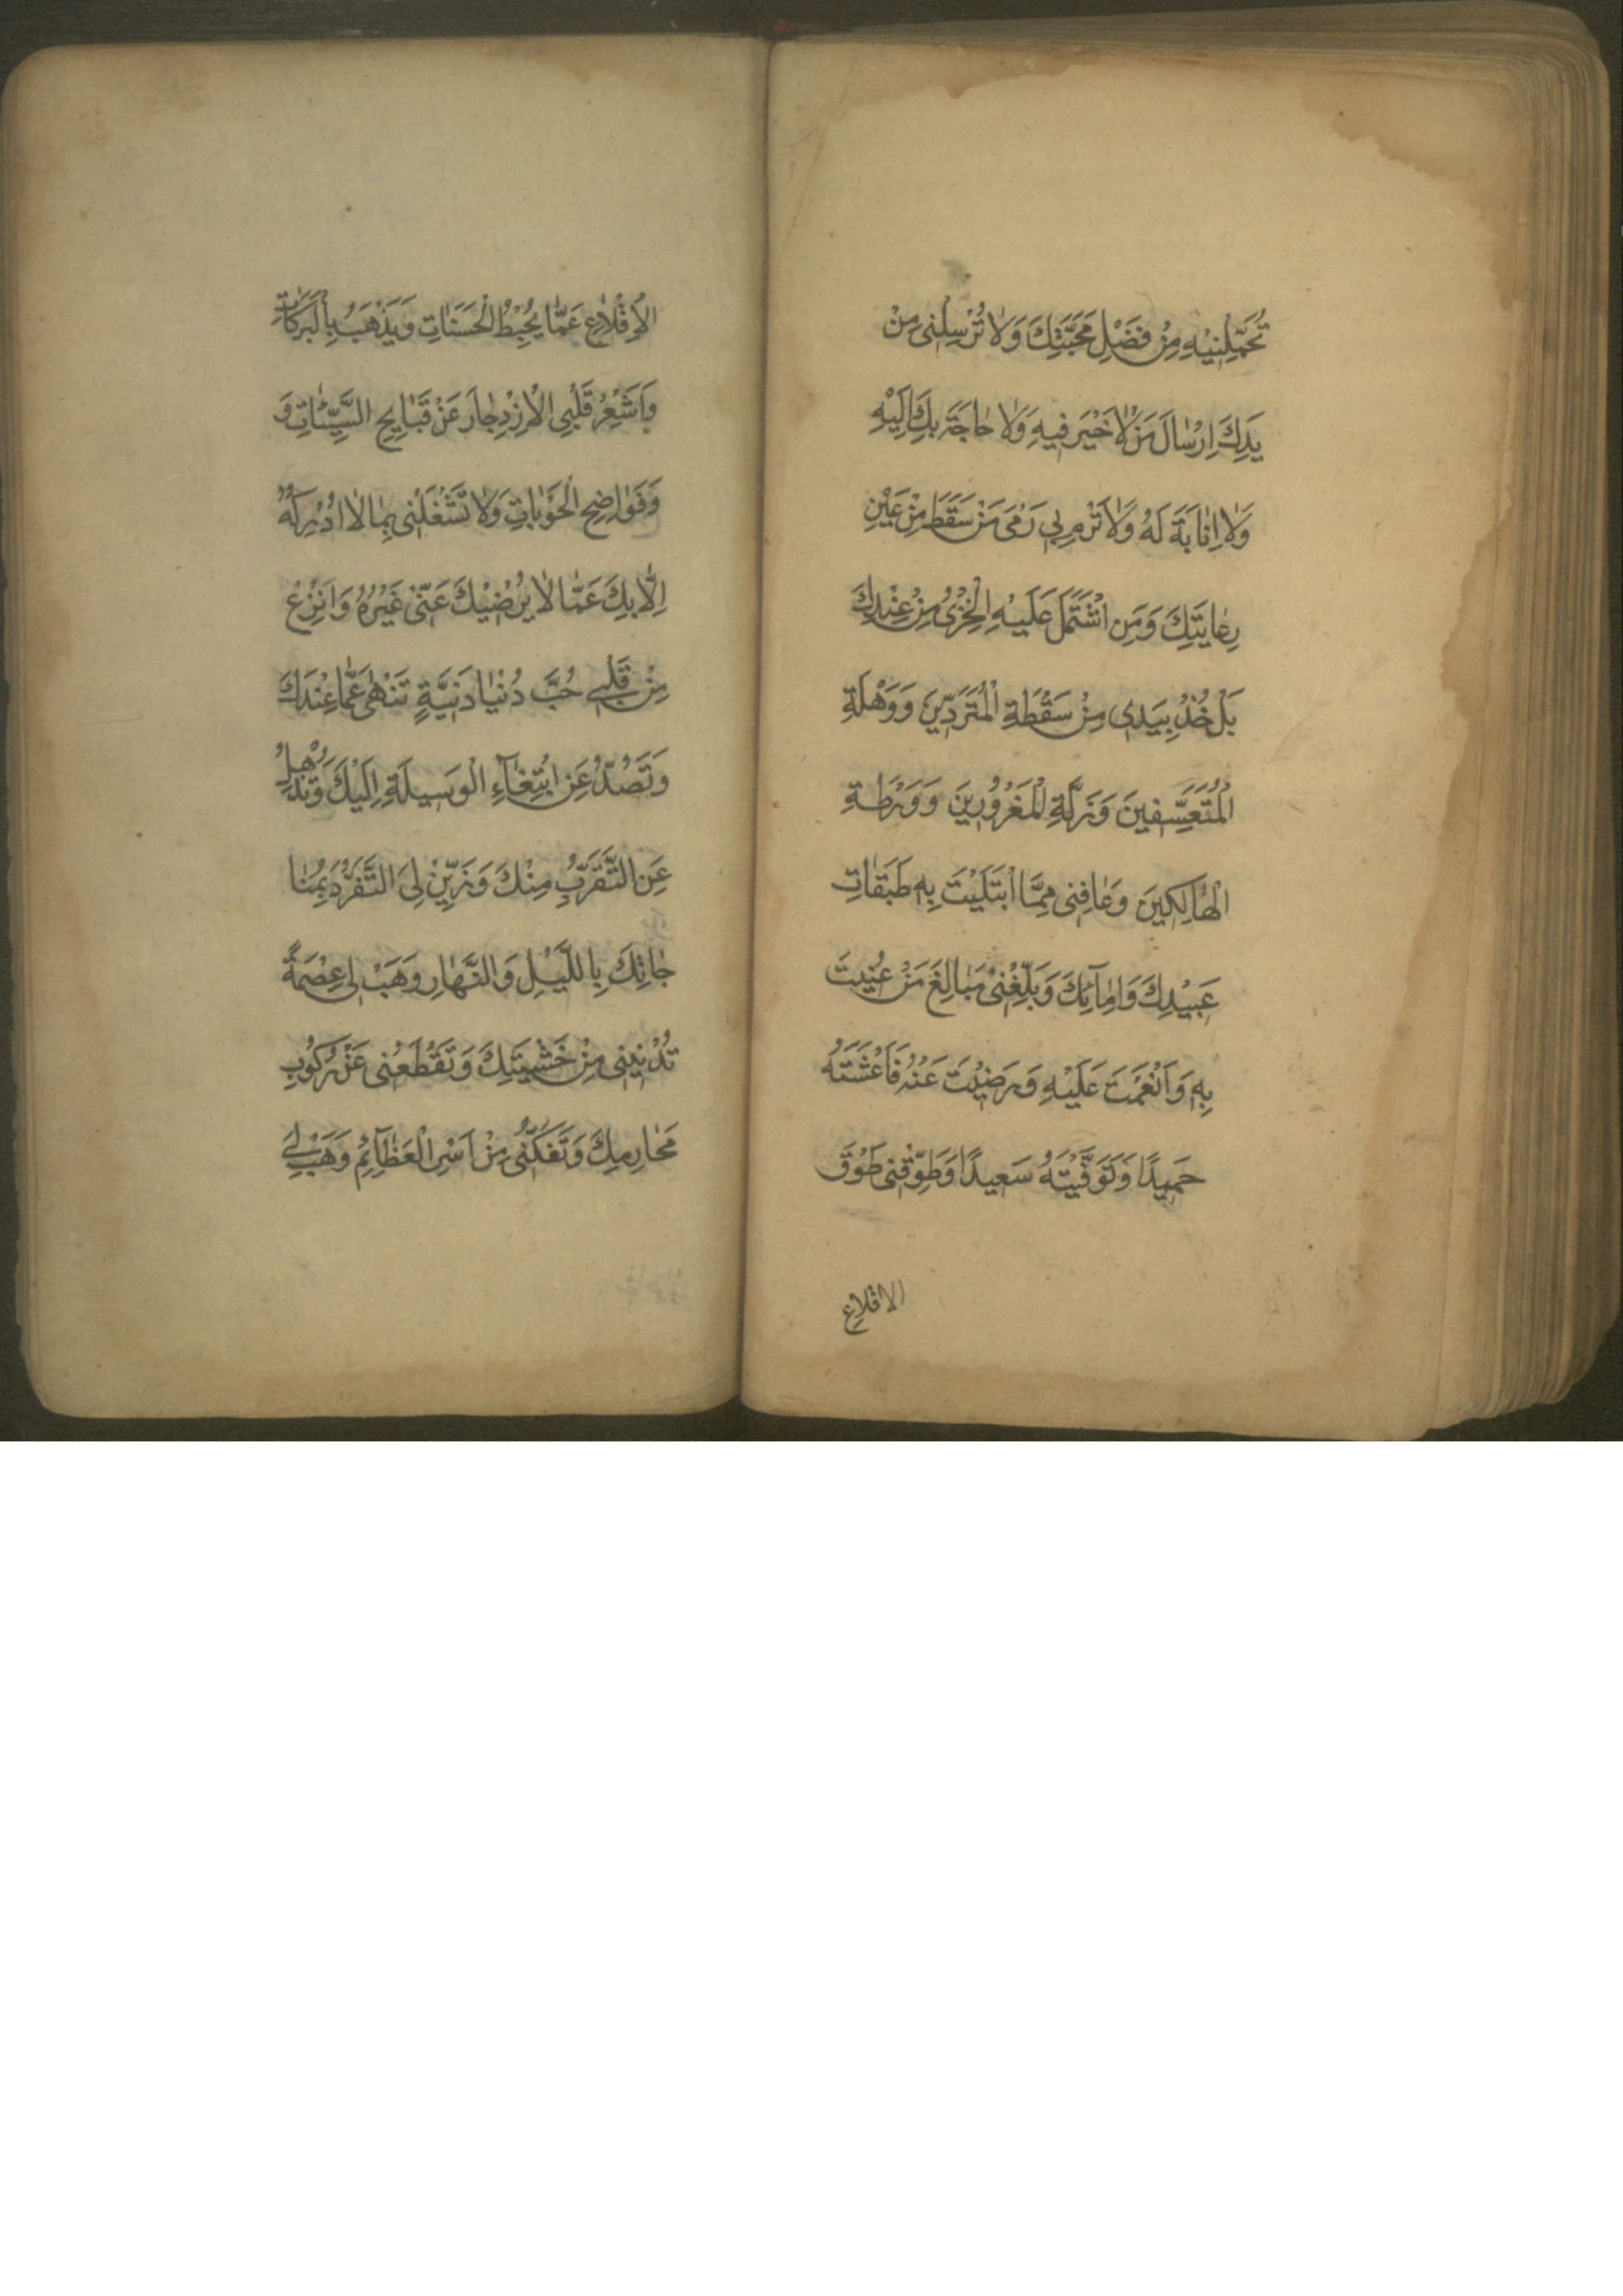 تُحَمِّلَنِيْهِ مِنْ فَضْلِ مَحَبَّتِكَ وَلَا تُرْسِلْنِى مِنْ
يَدِكَ اِرْسَالَ مَنْ لَا خَيْرَ فِيهِ وَلَا حَاجَةَ بِكَ اِلَيْهِ
وَلَا اِنَابَةَ لَهُ وَلَا تَرْمِ بِى رَمْىَ مَنْ سَقَطَ مِنْ عَيْنِ
رِعَايَتِكَ وَمَنِ اشْتَمَلَ عَلَيْهِ الْخِزْىُ مِنْ عِنْدِكَ
بَلْ خُذْ بِيَدِى مِنْ سَقْطَةِ الْمُتَرَدِّينَ وَوَهْلَةِ
الْمُتَعَسِّفِينَ وَزَلَّةِ الْمَغْرُورِينَ وَوَرْطَةِ
الْهَالِكِينَ وَعَافِنِى مِمَّا ابْتَلَيْتَ بِهِ طَبَقَاتِ
عَبِيْدِكَ وَاِمَآئِكَ وَبَلِّغْنِى مَبَالِغَ مَنْ عُنِيتَ
بِهِ وَاَنْعَمْتَ عَلَيْهِ وَرَضِيْتَ عَنْهُ فَاَعَشْتَهُ
حَمِيدًا وَتَوَفَّيْتَهُ سَعِيدًا وَطَوِّقْنِى طَوْقَ
الاقلاع
الْاِقْلَاعِ عَمَّا يُحْبِطُ الْحَسَنَاتِ وَيَذْهَبُ بِالْبَرَكَاتِ
وَاَشْعِرْ قَلْبِىَ الْاِزْدِجَارَ عَنْ قَبَايِحِ السَّيِّئَاتِ وَ
وَفَوَاضِحِ الْحَوْبَاتِ وَلَا تَشْغَلْنِى بِمَا لَا اُدْرِكُهُ
اِلَّا بِكَ عَمَّا لَا يُرْضِيْكَ عَنِّى غَيْرُهُ وَانْزِعْ
مِنْ قَلْبِى حُبَّ دُنْيَا دَنِيَّةٍ تَنْهٰى عَمَّا عِنْدَكَ
وَتَصُدُّ عَنِ ابْتِغَآءِ الْوَسِيلَةِ اِلَيْكَ وَتُذْهِلُ
عَنِ التَّقَرُّبِ مِنْكَ وَزَيِّنْ لِىَ التَّفَرُّدَ بِمُنَا
جَاتِكَ بِاللَّيْلِ وَالنَّهَارِ وَهَبْ لِى عِصْمَةً
تُدْنِينِى مِنْ خَشْيَتِكَ وَتَقْطَعُنِى عَنْ رُكُوْبِ
مَحَارِمِكَ وَتَفُكُّنِى مِنْ اَسْرِ الْعَظَآئِمِ وَهَبْ لِى